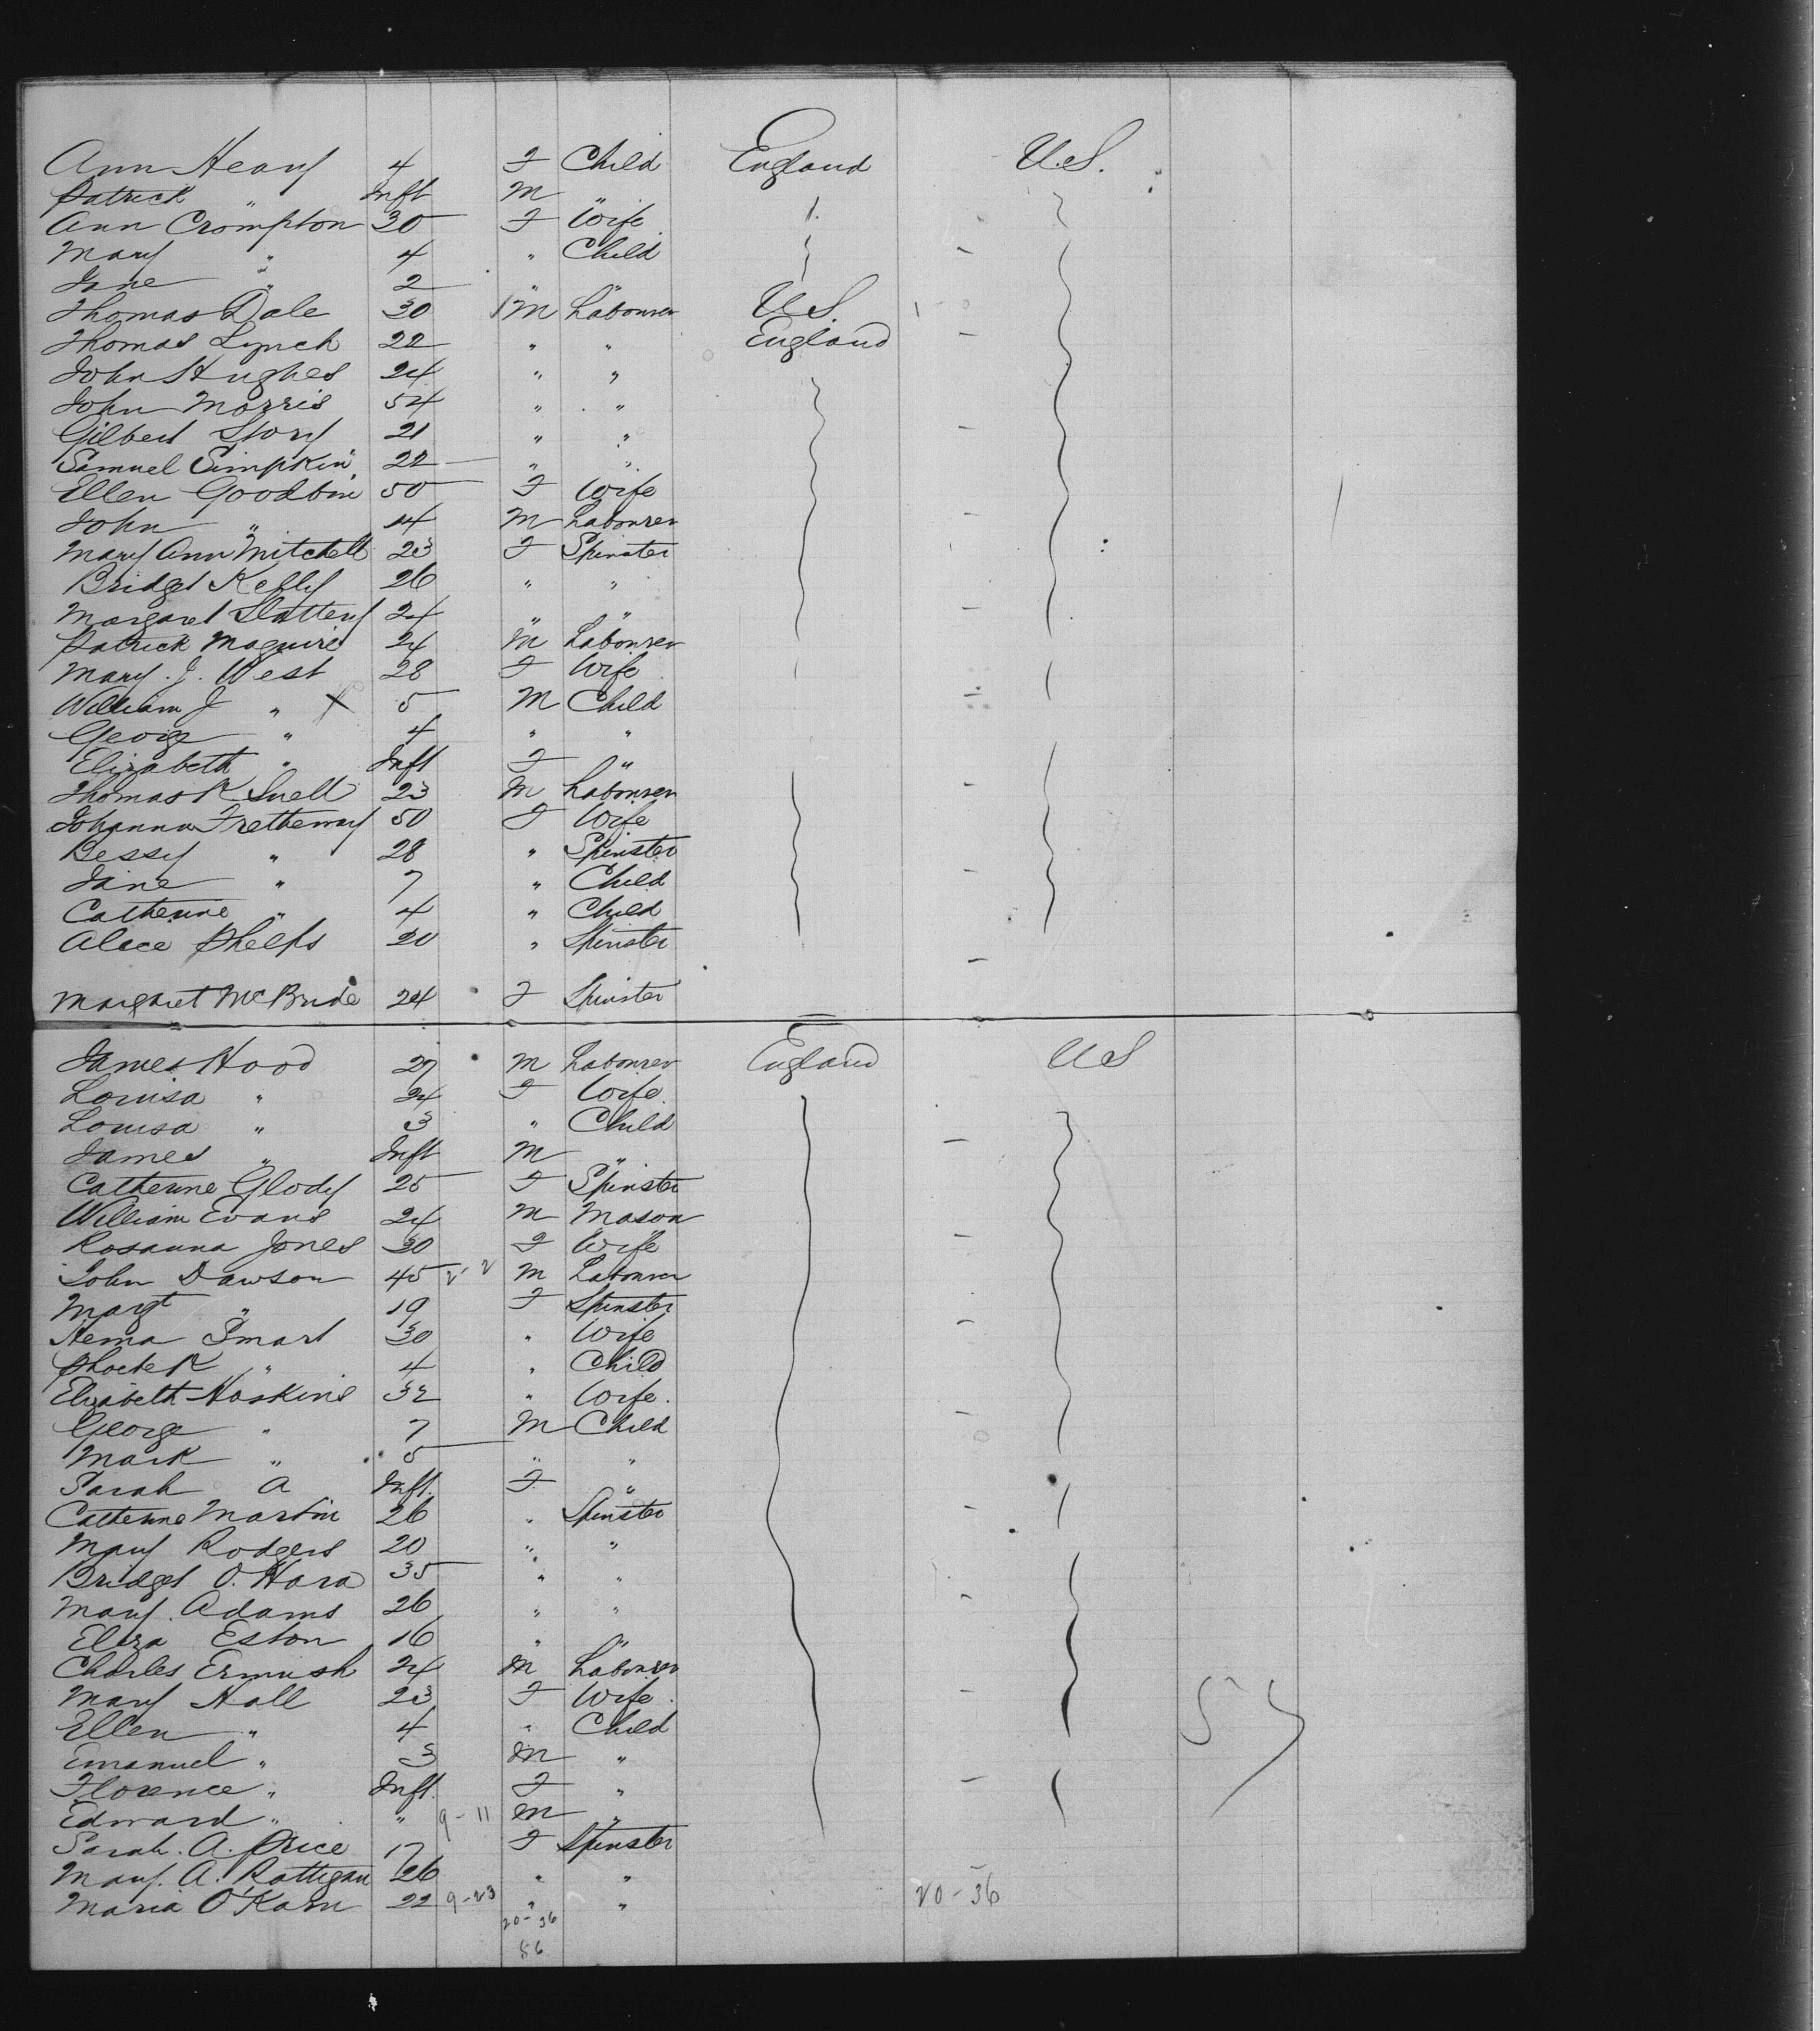 Ann Heavy 4 F Child England U.S.
Patrick " Inft M "
Ann Crompton 30 F Wife
Mary " 4 " Child
Jane " 2 " "
Thomas Dale 30 M Labourer U.S.
Thomas Lynch 22 " " England
John Hughes 24 " "
John Morris 54 " "
Gilbert Story 21 " "
Samuel Simpkin 22 " "
Ellen Goodbin 50 F Wife
John " 14 M Labourer
Mary Ann Mitchell 23 F Spinster
Bridget Kelly 26 " "
Margaret Slattery 24 " "
Patrick Maguire 24 M Labourer
Mary J. West 28 F Wife
William J " X 5 M Child
George " 4 " "
Elizabeth " Inft F "
Thomas K Snell 23 M Labourer
Johanna Tretheway 50 F Wife
Bessy " 28 " Spinster
Jane " 7 " Child
Catherine " 4 " Child
Alice Phelps 20 " Spinster
Margaret McBride 24 F Spinster
James Hood 27 M Labourer England US
Louisa " 24 F Wife
Louisa " 3 " Child
James " Inft M "
Catherine Glody 25 F Spinster
William Evans 24 M Mason
Rosanna Jones 30 F Wife
John Dawson 45 M Labourer
Margt " 19 F Spinster
Smart 30 " Wife
Phoebe K " 4 " Child
Elizabeth Hoskins 32 " Wife
George " 7 M Child
Mark " 5 " "
Sarah A Inft. F "
Catherine Martin 26 " Spinster
Mary Rodgers 20 " "
Bridget O.Hara 35 " "
Mary Adams 26 " "
Eliza Eston 16 " "
Charles Ermush 24 M Labourer
Mary Hall 23 F Wife
Ellen " 4 " Child
Emanuel " 3 M "
Florence " Inft. F "
Edward " " 9-11 M "
Sarah. A. Price 17 F Spinster
Mary. A. Rattigan 26 " "
Maria O'Karn 22 9-23 " " 20-36
20-36
56